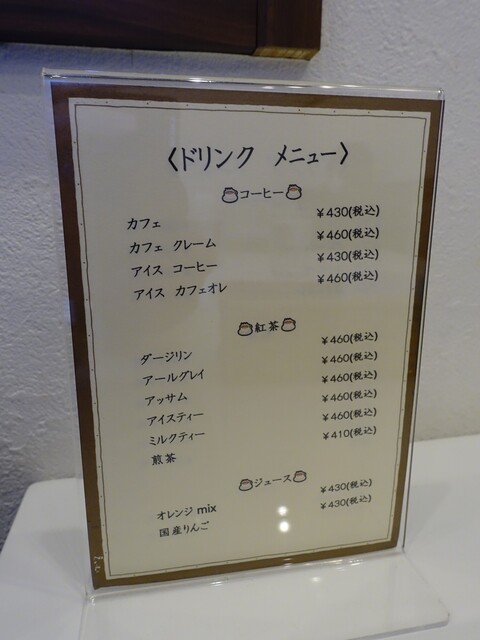 〈ドリンク メニュー〉
コーヒー
カフェ ¥430(税込)
カフェ クレーム ¥460(税込)
アイス コーヒー ¥430(税込)
アイス カフェオレ ¥460(税込)
紅茶
ダージリン ¥460(税込)
アールグレイ ¥460(税込)
アッサム ¥460(税込)
アイスティー ¥460(税込)
ミルクティー ¥460(税込)
煎茶 ¥410(税込)
ジュース
オレンジ mix ¥430(税込)
国産りんご ¥430(税込)